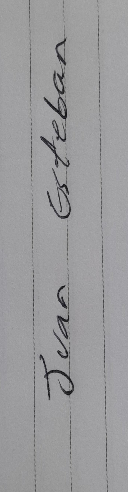 Juan Esteban